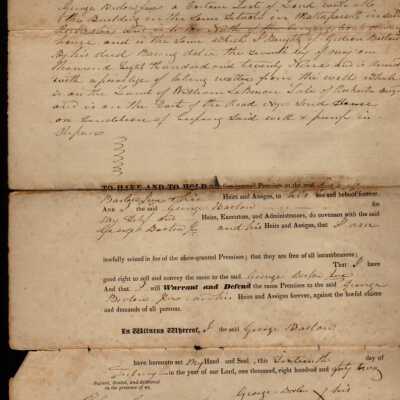 George Barlow Jun a Certain Lott of Land with all
the Building on the Same Situate in Mattapoisett
and is the Same which I Bought of Gideon Barlow
By his deed Baring date the Seventh day of may one
thousand Eight hundred and twenty Nine and is
with a privilege of taking watter from the well which
is on the Land of William LeBaron Late of Rochester
and is on the East of the Road
on Condition of keeping Said well & pump in
Repair
TO HAVE AND TO HOLD the afore-granted Premises to the said George
Barlow Jun & his Heirs and Assigns, to his use and behoof forever.
AND I the said George Barlow for
my Self and Heirs, Executors, and Administrators, do covenant with the said
George Barlow Jr and his Heirs and Assigns, that I am
lawfully seized in fee of the afore-granted Premises; that they are free of all incumbrances;
That I have
good right to sell and convey the same to the said George Barlow Jun
And that I will Warrant and Defend the same Premises to the said George
Barlow Jun and his Heirs and Assigns forever, against the lawful claims
and demands of all persons.
In Witness Whereof, I the said George Barlow
have hereunto set my Hand and Seal this Sixteenth day of
in the year of our Lord, one thousand, eight hundred and forty two
Signed, Sealed, and delivered
in the presence of
George Barlow & his